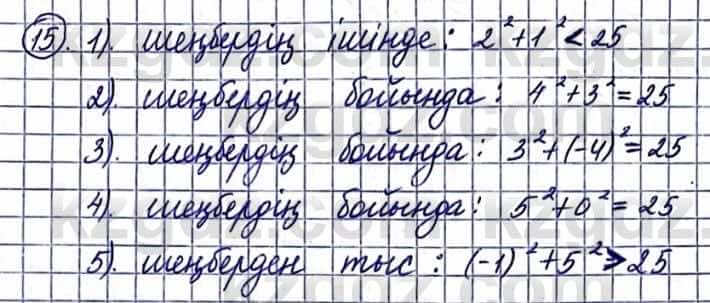 15. 1). шеңбердің ішінде: 2² + 1² < 25
2). шеңбердің бойында: 4² + 3² = 25
3). шеңбердің бойында: 3² + (-4)² = 25
4). шеңбердің бойында: 5² + 0² = 25
5). шеңберден тыс: (-1)² + 5² > 25